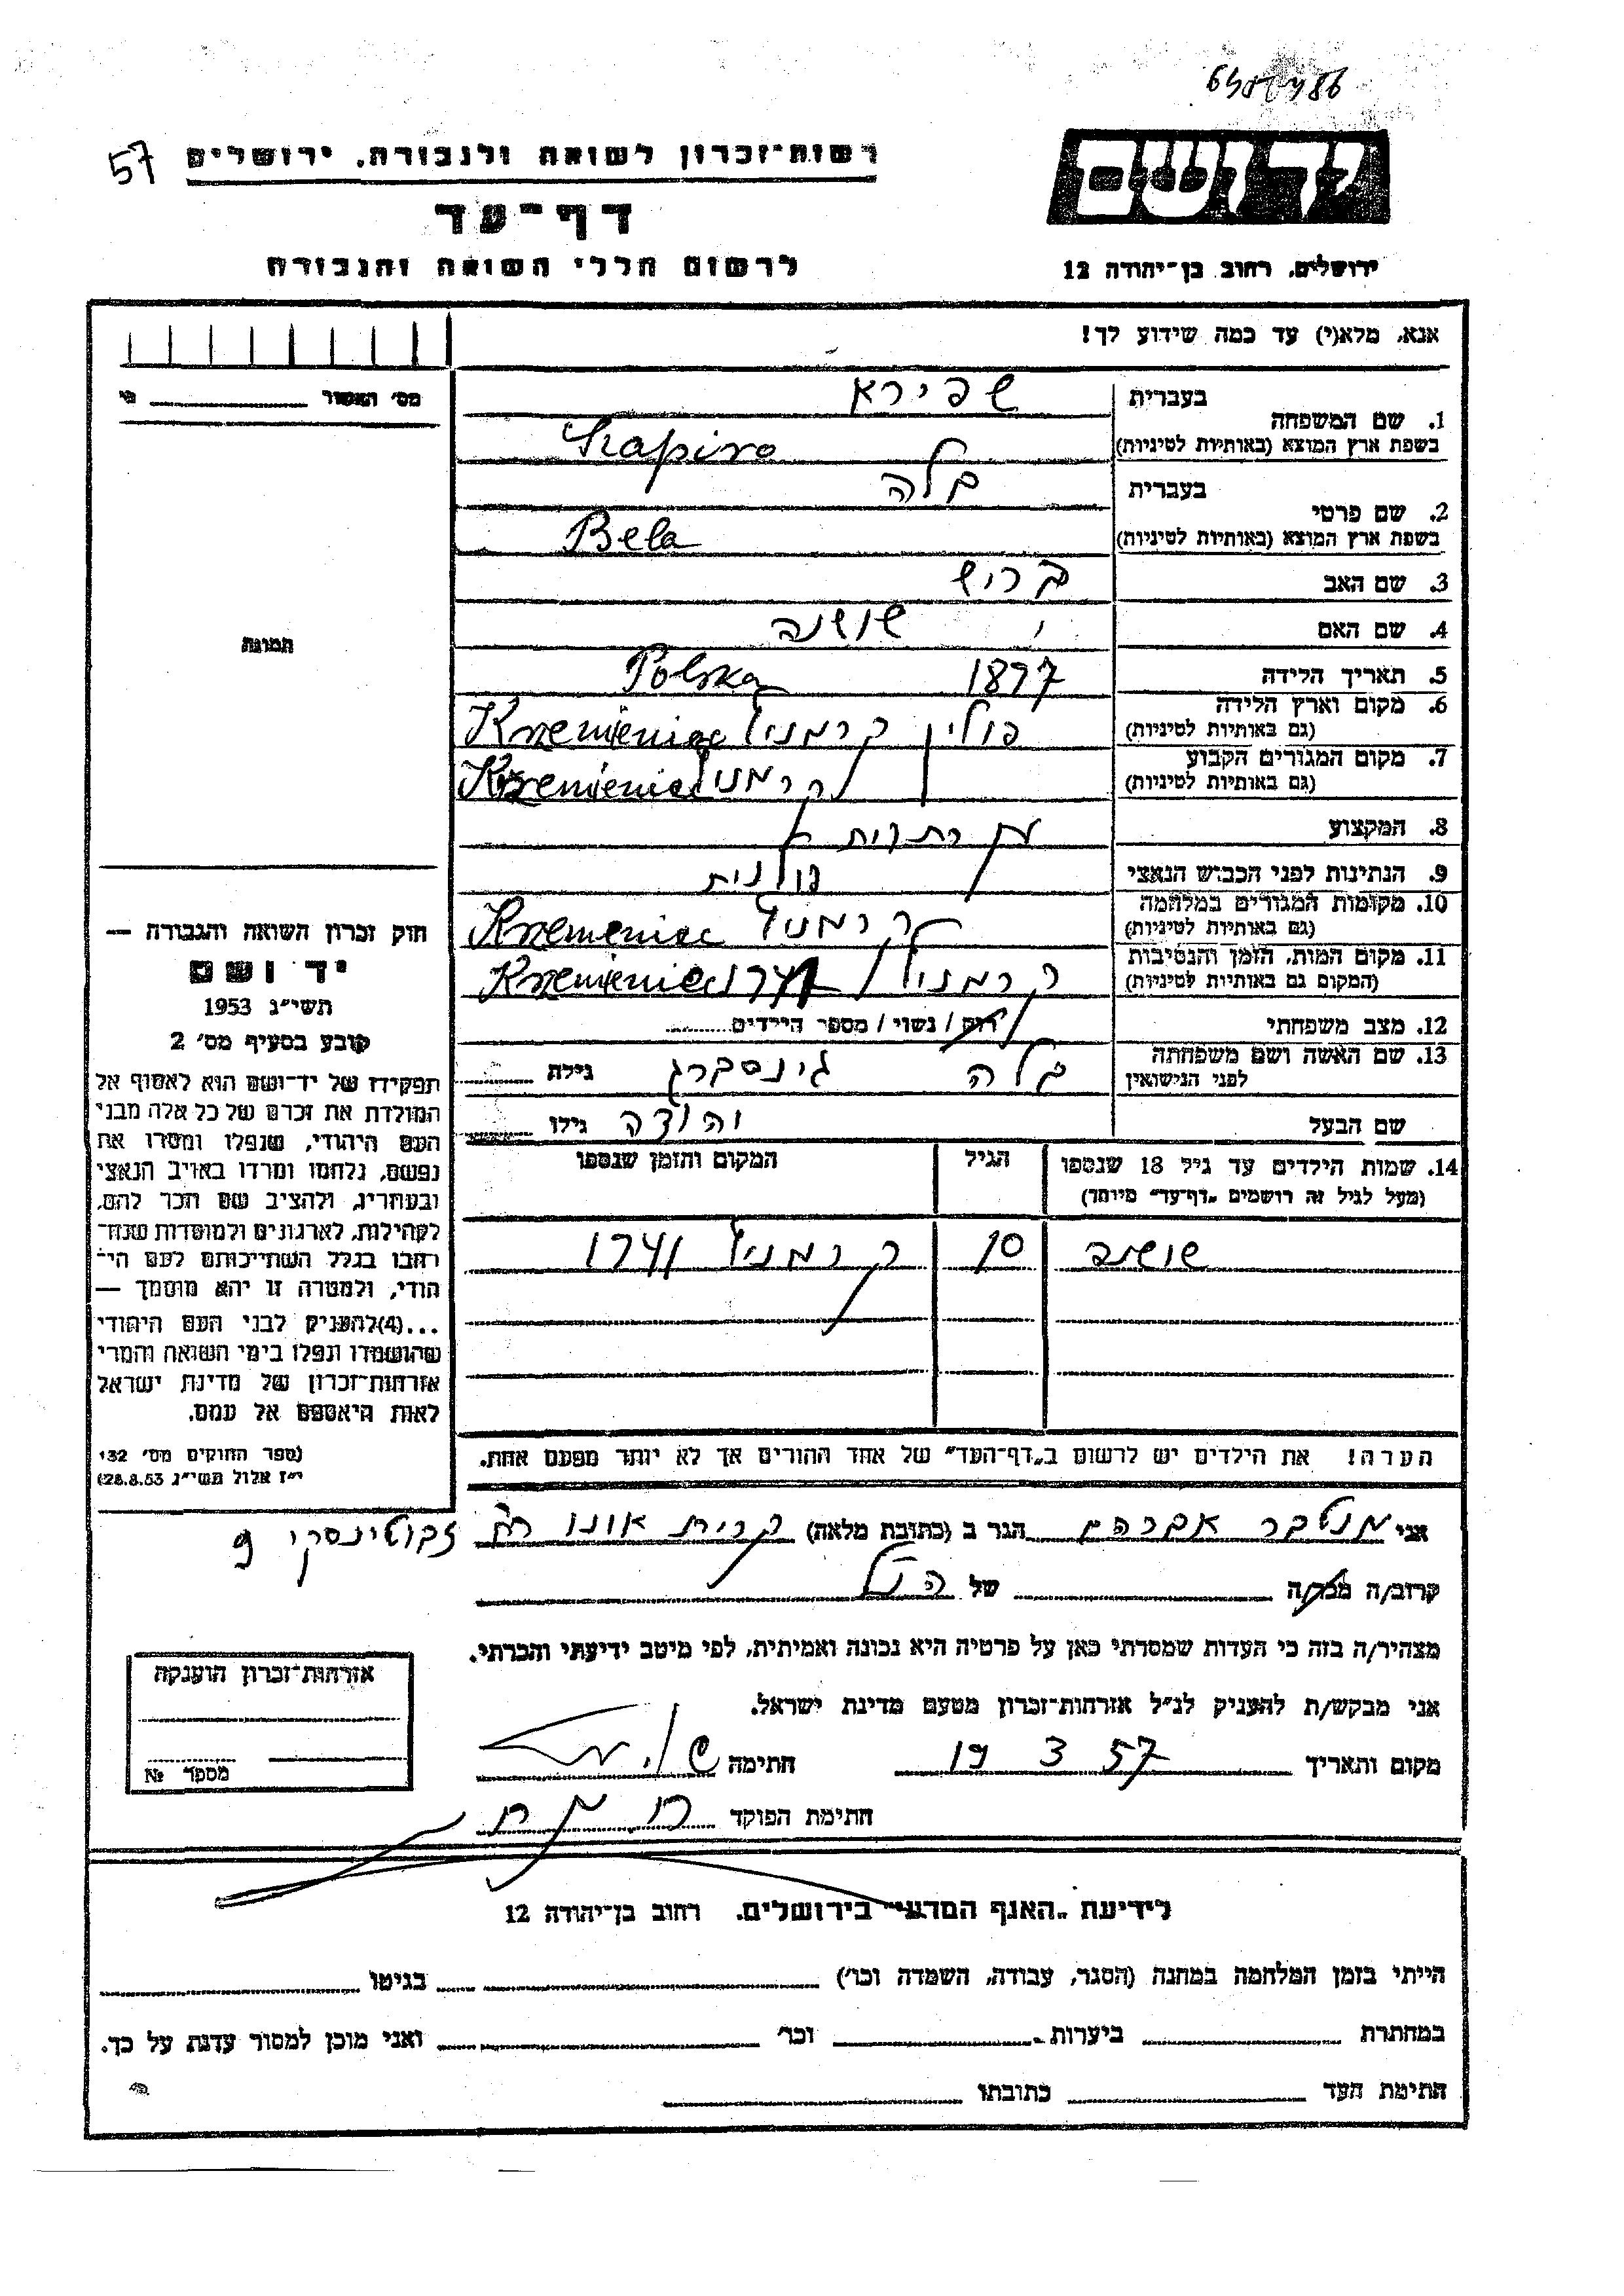 57
רשות-זכרון לשואה ולגבורה, ירושלים
דף-עד
לרשום חללי השואה והגבורה
יד ושם
ירושלים, רחוב בן-יהודה 12
אנא, מלא(י) עד כמה שידוע לך!
בעברית שפירא
1. שם המשפחה
בשפת ארץ המוצא (באותיות לטיניות) Szapiro
בעברית בלה
2. שם פרטי
בשפת ארץ המוצא (באותיות לטיניות) Bela
3. שם האב
4. שם האם שושנה
5. תאריך הלידה 1897 Polska
6. מקום וארץ הלידה
(גם באותיות לטיניות) פולין קרמניץ Krzemieniec
7. מקום המגורים הקבוע
(גם באותיות לטיניות) קרמניץ Krzemieniec
8. המקצוע עקרת בית
9. הנתינות לפני הכבוש הנאצי פולנית
10. מקומות המגורים במלחמה
(גם באותיות לטיניות) קרמניץ Krzemieniec
11. מקום המות, הזמן והנסיבות
(המקום גם באותיות לטיניות) קרמניץ Krzemieniec 1941
12. מצב משפחתי רווק / נשוי / מספר הילדים
13. שם האשה ושם משפחתה
לפני הנישואין בלה גינסברג גילה
שם הבעל יהודה גילו
14. שמות הילדים עד גיל 18 שנספו הגיל המקום והזמן שנספו
(מעל לגיל זה רושמים "דף-עד" מיוחד)
שושנה 10 קרמניץ 1941
הערה! את הילדים יש לרשום ב"דף-העד" של אחד ההורים אך לא יותר מפעם אחת.
מס' האשור
תמונה
חוק זכרון השואה והגבורה —
יד ושם
תשי"ג 1953
קובע בסעיף מס' 2
תפקידו של יד-ושם הוא לאסוף אל
המולדת את זכרם של כל אלה מבני
העם היהודי, שנפלו ומסרו את
נפשם, נלחמו ומרדו באויב הנאצי
ובעוזריו, ולהציב שם וזכר להם,
לקהילות, לארגונים ולמוסדות שנח-
רבו בגלל השתייכותם לעם הי-
הודי, ולמטרה זו יהא מוסמך —
...(4) להעניק לבני העם היהודי
שהושמדו ונפלו בימי השואה והמרי
אזרחות-זכרון של מדינת ישראל
לאות היאספם אל עמם.
(ספר החוקים מס' 132
י"ז אלול תשי"ג 28.8.53)
אני אברהם הגר ב (כתובת מלאה) קרית אונו רח' זבוטינסקי 9
קרוב/ה מכר/ה של הנ"ל
מצהיר/ה בזה כי העדות שמסרתי כאן על פרטיה היא נכונה ואמיתית, לפי מיטב ידיעתי והכרתי.
אני מבקש/ת להעניק לנ"ל אזרחות-זכרון מטעם מדינת ישראל.
מקום ותאריך 19 3 57 חתימה
חתימת הפוקד
אזרחות-זכרון הוענקה
מספר №
לידיעת "האגף המדעי" בירושלים, רחוב בן-יהודה 12
הייתי בזמן המלחמה במחנה (הסגר, עבודה, השמדה וכו') בגיטו
במחתרת ביערות וכו' ואני מוכן למסור עדות על כך.
חתימת העד כתובתו